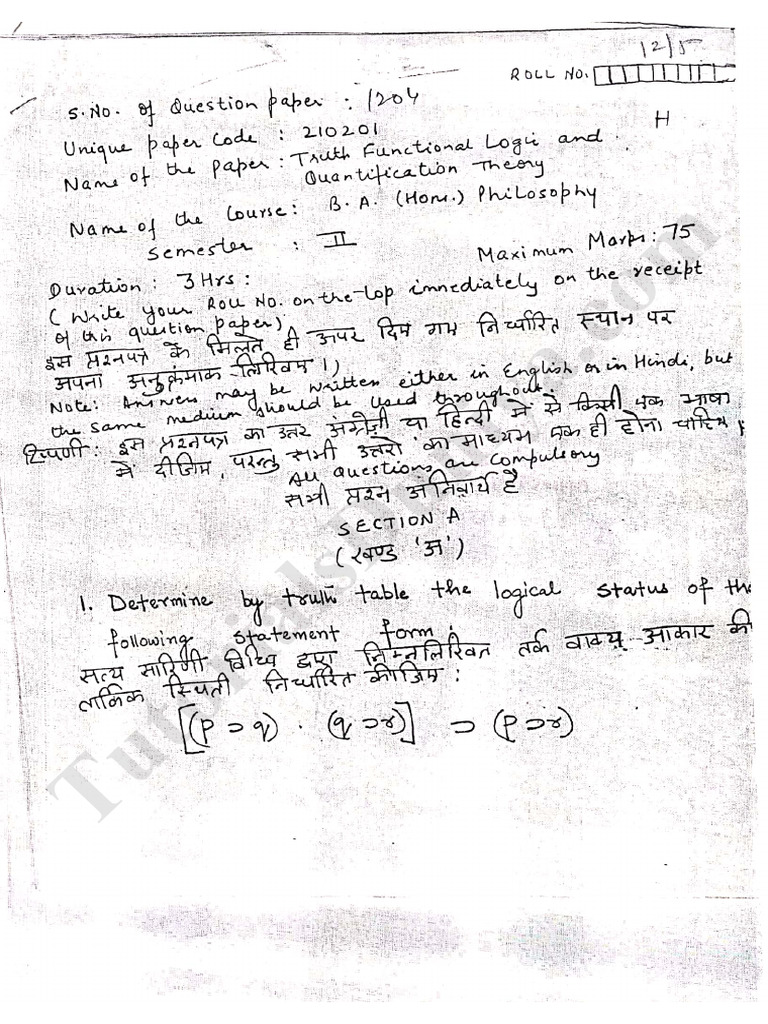 12/5
ROLL NO.
S.No. of Question paper : 1204
H
Unique paper Code : 210201
Name of the Paper : Truth Functional Logic and
Quantification Theory
Name of the Course : B.A. (Hons.) Philosophy
Semester : II
Maximum Marks : 75
Duration : 3 Hrs :
(Write your Roll No. on the top immediately on the receipt
of this question paper)
इस प्रश्नपत्र के मिलते ही ऊपर दिए गए निर्धारित स्थान पर
अपना अनुक्रमांक लिखिए।)
Note: Answers may be written either in English or in Hindi, but
the same medium should be used throughout.
टिप्पणी : इस प्रश्नपत्र का उत्तर अंग्रेजी या हिन्दी में से किसी एक भाषा
में दीजिए, परन्तु सभी उत्तरों का माध्यम एक ही होना चाहिए।
All questions are compulsory
सभी प्रश्न अनिवार्य है
SECTION A
(खण्ड 'अ')
1. Determine by truth table the logical status of the
following statement form :
सत्य सारिणी विधि द्वारा निम्नलिखित तर्क वाक्य आकार की
तार्किक स्थिती निर्धारित कीजिए :
[(p ⊃ q) . (q ⊃ r)] ⊃ (p ⊃ r)